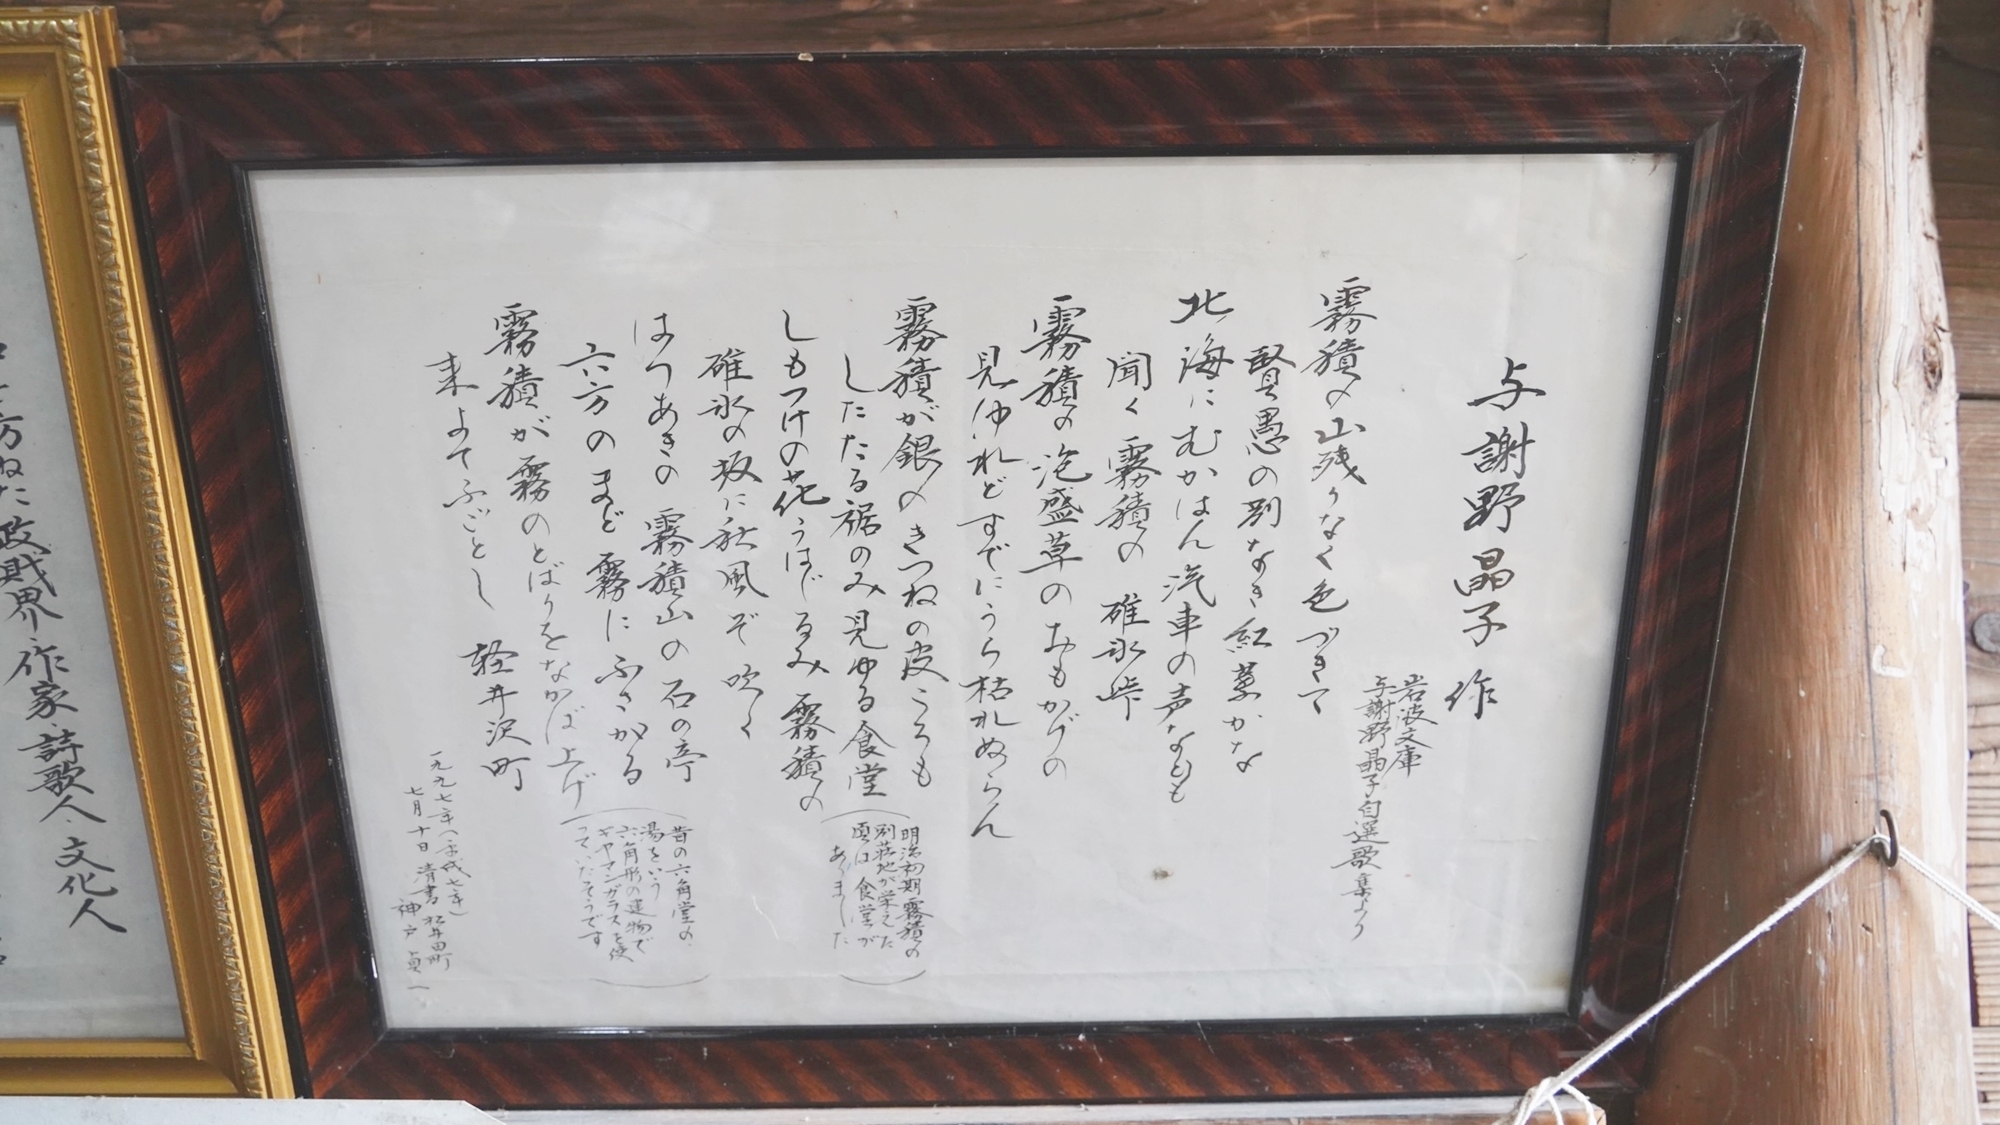 与謝野晶子 作
岩波文庫
与謝野晶子自選歌集より
霧積の山残りなく色づきて
賢愚の別なき紅葉かな
北海にむかはん汽車の声なども
聞く霧積の碓氷峠
霧積の泡盛草のおもかげの
見ゆれどすでにうら枯れぬらん
霧積が銀のきつねの皮ころも
したたる裾のみ見ゆる食堂
(明治初期霧積の
別荘地が栄えた
頃は食堂が
ありました)
しもつけの花うはじろみ霧積の
碓氷の坂に秋風ぞ吹く
はつあきの霧積山の石の亭
六方のまど霧にふさがる
(昔の六角堂の
湯をいう
六角形の建物で
ギヤマンガラスを使
っていたそうです)
霧積が霧のとばりをなかば上げ
来よてふごとし 軽井沢町
一九九七年(平成七年)
七月十日 清書 松井田町
神戸 貞一
政財界 作家、詩歌人、文化人